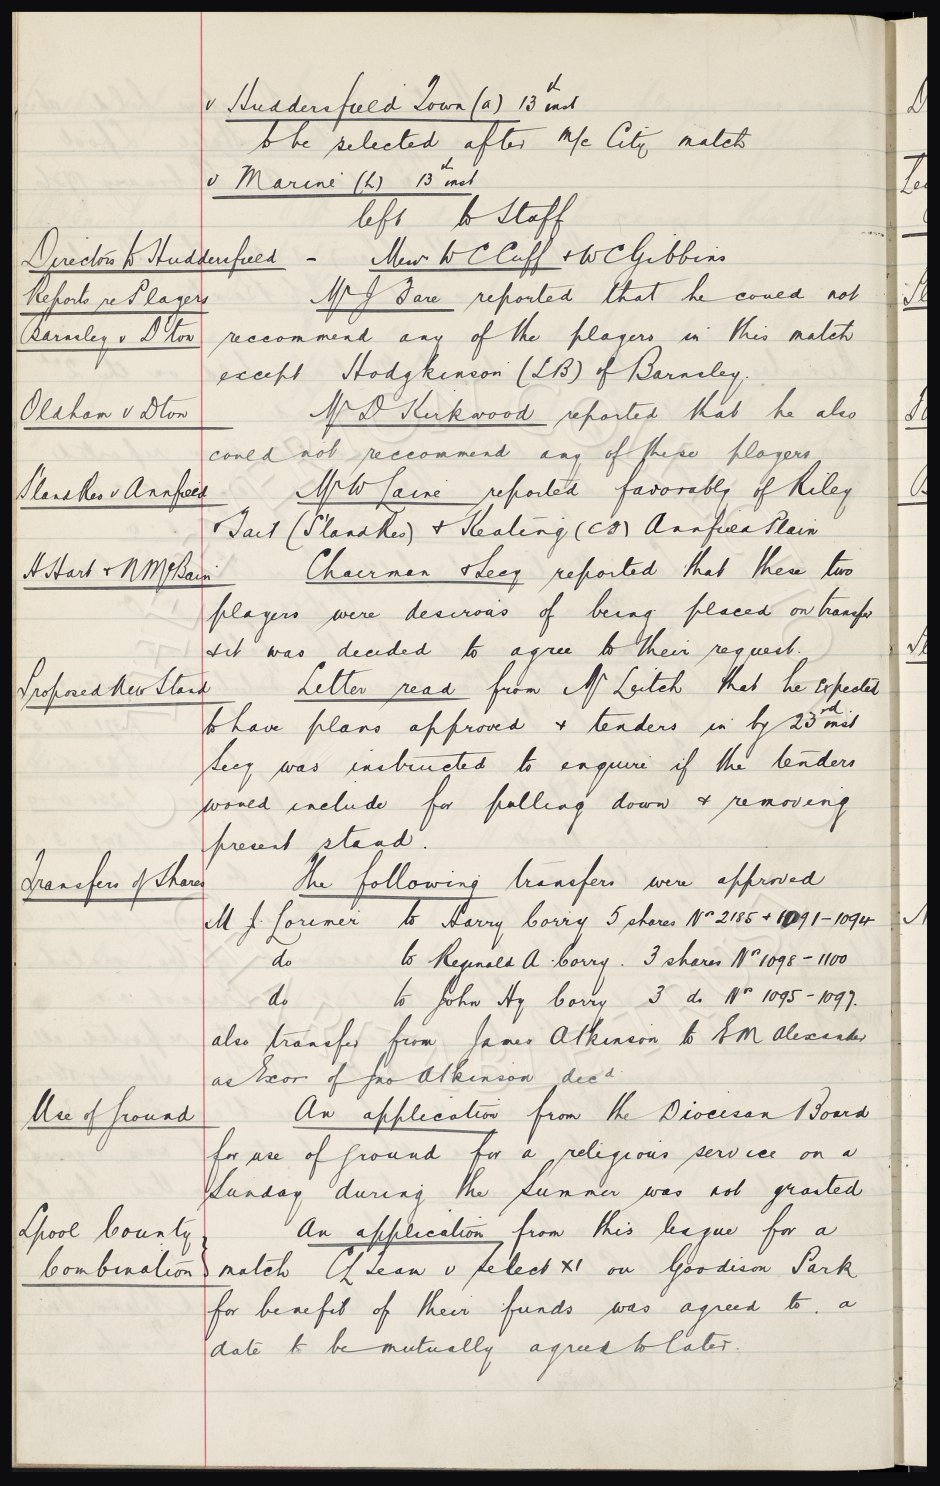 v Huddersfield Town (a) 13th inst
to be selected after M/c City match
v Marine (h) 13th inst
left to Staff
Directors to Huddersfield - Messrs W C Cuff & W C Gibbins
Reports re Players Mr J Fare reported that he could not
Barnsley v D'ton reccommend any of the players in this match
except Hodgkinson (LB) of Barnsley.
Oldham v Dton Mr D Kirkwood reported that he also
could not reccommend any of these players
S'land Res v Annfield Mr W Caine reported favorably of Riley
& Tait (S'land Res) & Keating (CD) Annfield Plain
H Hart & N McBain Chairman & Secy reported that these two
players were desirous of being placed on transfer
& it was decided to agree to their request.
Proposed New Stand Letter read from Mr Leitch that he expected
to have plans approved & tenders in by 23rd inst
Secy was instructed to enquire if the tenders
would include for pulling down & removing
present stand.
Transfers of Shares The following transfers were approved
M J. Lorimer to Harry Corry 5 shares Nos 2185 & 1091-1094
do to Reginald A. Corry. 3 shares Nos 1098-1100
do to John Hy Corry 3 do Nos 1095-1097.
also transfer from James Atkinson to E M Alexander
as Exor of Jno Atkinson decd
Use of Ground An application from the Diocisan Board
for use of ground for a religious service on a
Sunday during the Summer was not granted
Lpool County An application from this league for a
Combination } match Ch Team v Select XI on Goodison Park
for benefit of their funds was agreed to. a
date to be mutually agreed to later.